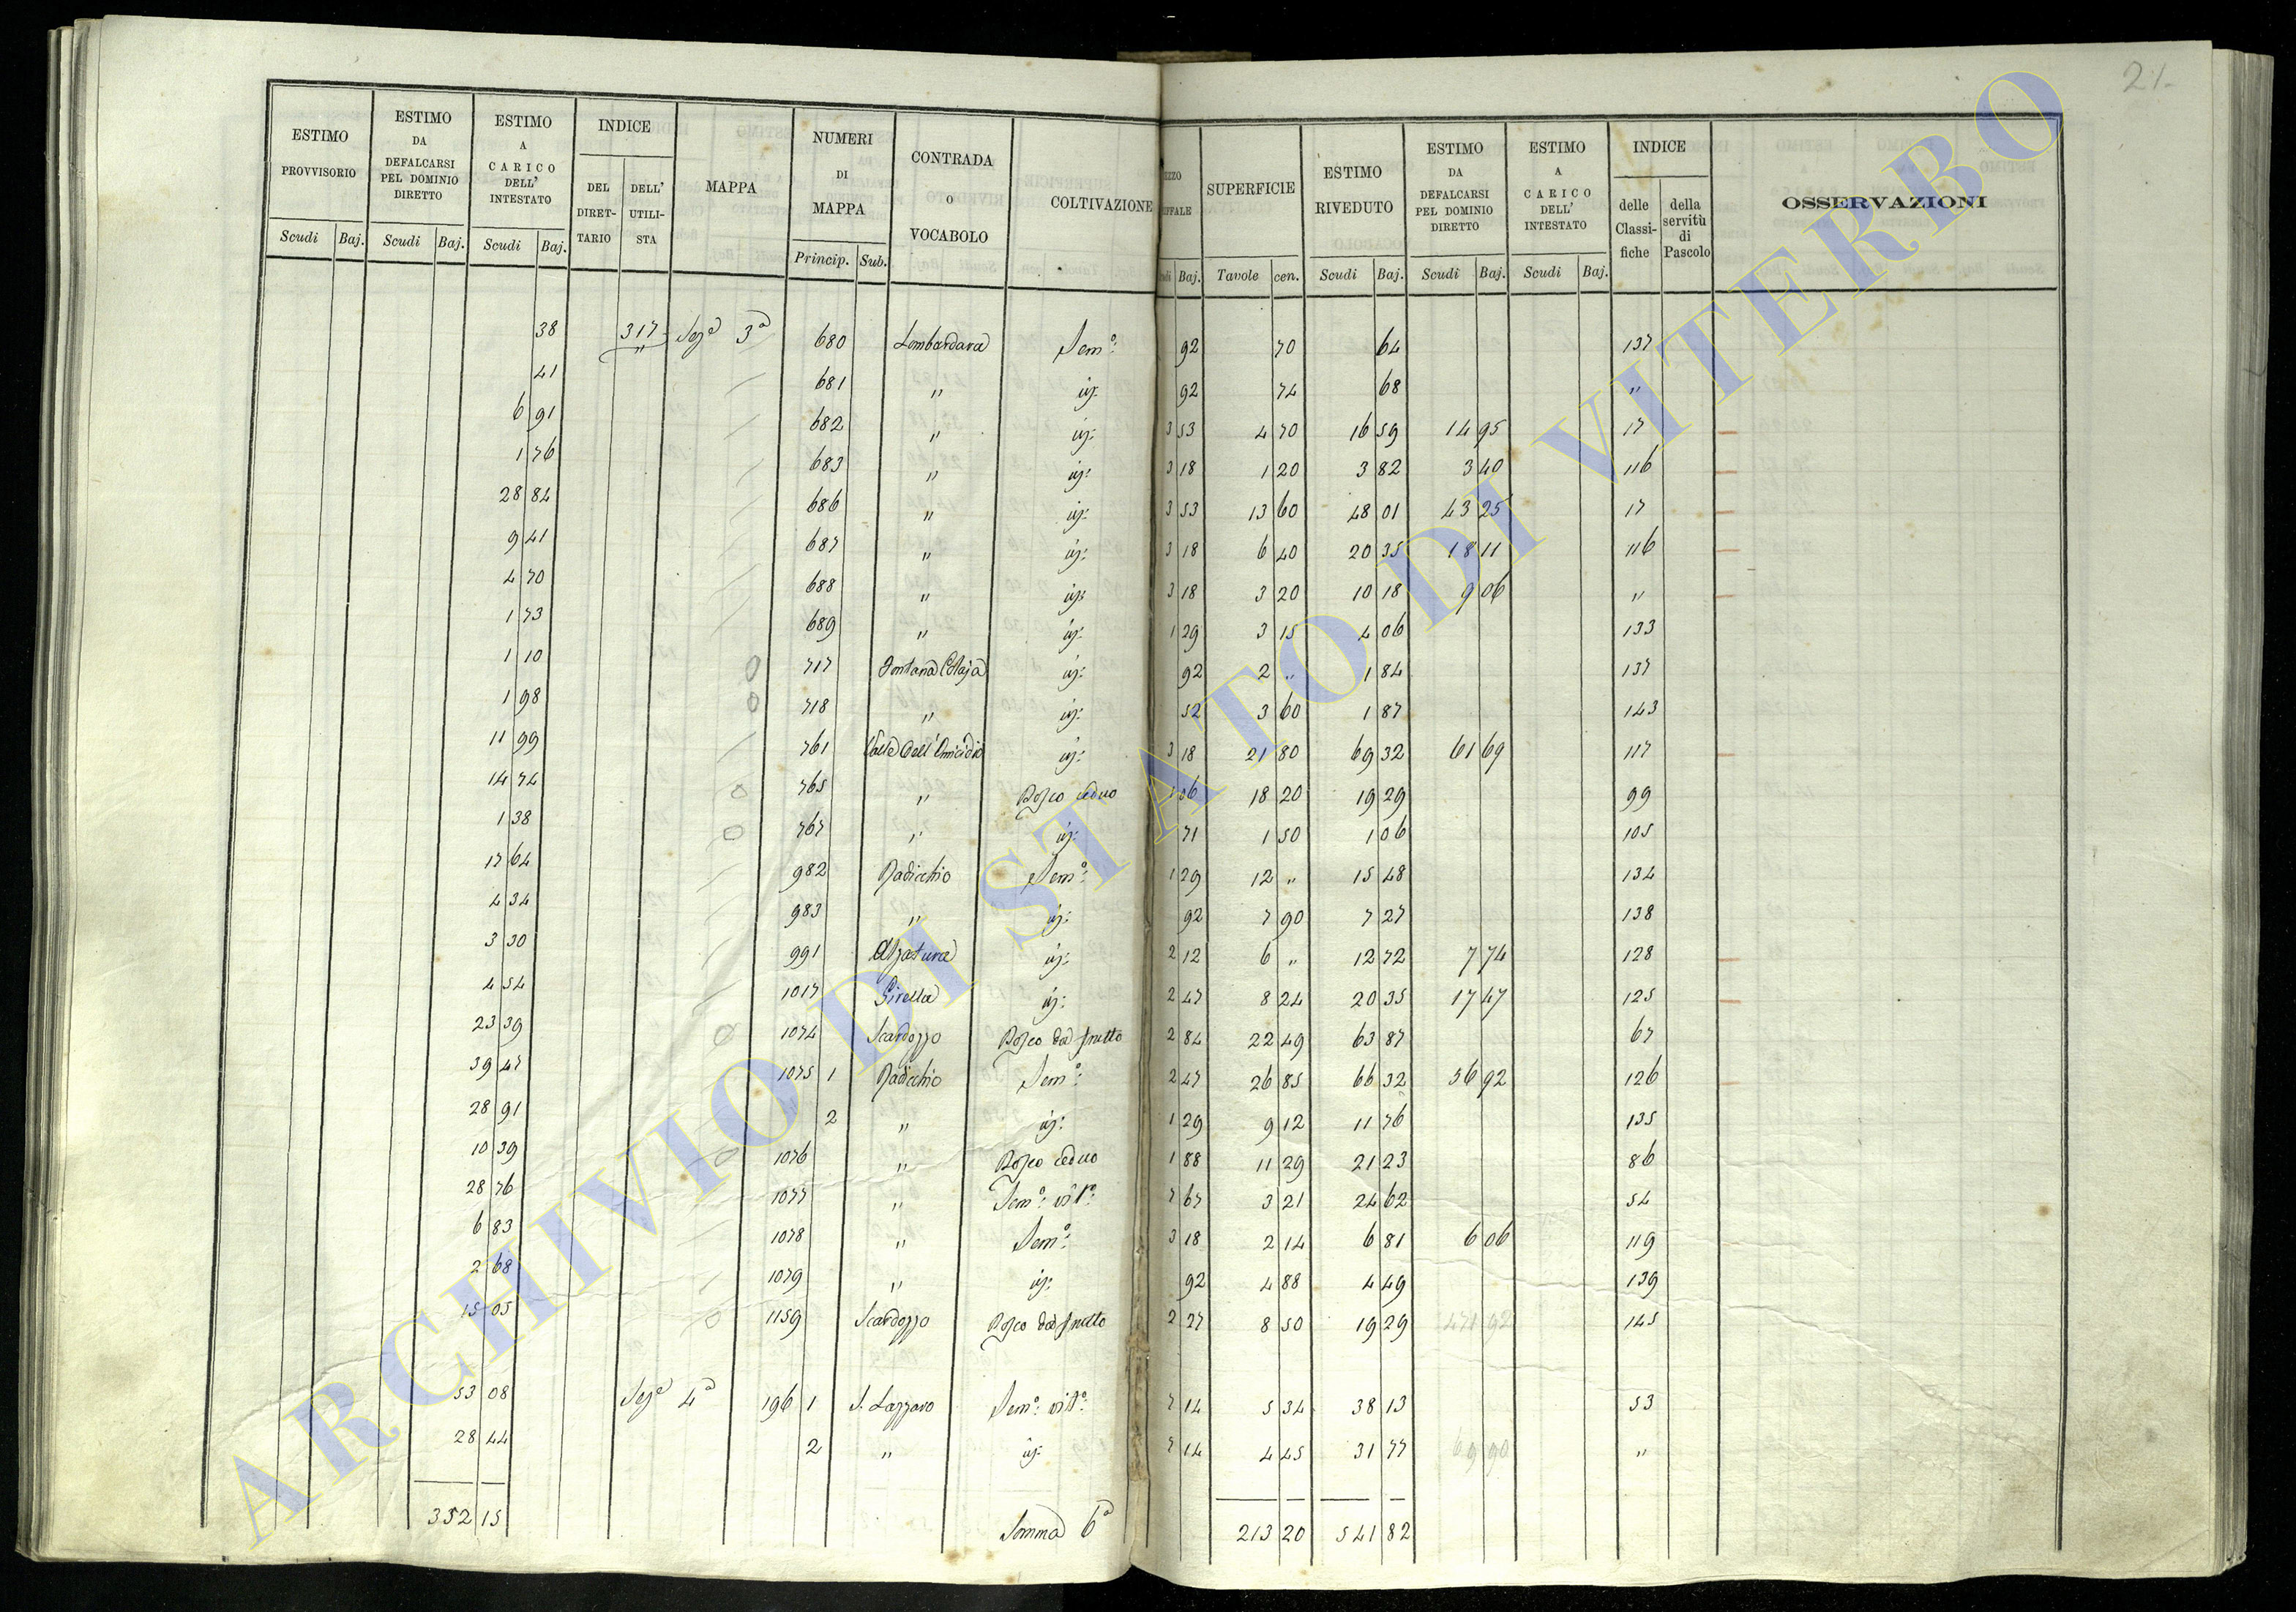 21.
ESTIMO PROVVISORIO | ESTIMO DA DEFALCARSI PEL DOMINIO DIRETTO | ESTIMO A CARICO DELL' INTESTATO | INDICE | MAPPA | NUMERI DI MAPPA | CONTRADA O VOCABOLO | COLTIVAZIONE | SUPERFICIE | ESTIMO RIVEDUTO | ESTIMO DA DEFALCARSI PEL DOMINIO DIRETTO | ESTIMO A CARICO DELL' INTESTATO | INDICE | OSSERVAZIONI
DEL DIRET-TARIO | DELL' UTILI-STA | delle Classi-fiche | della servitù di Pascolo
Scudi | Baj. | Scudi | Baj. | Scudi | Baj. | Princip. | Sub. | Baj. | Tavole | cen. | Scudi | Baj. | Scudi | Baj. | Scudi | Baj.
38 | 317 | Sezᵉ 3ª | 680 | Lombardara | Semº: | 92 | 70 | 64 | 137
41 | " | 681 | " | id: | 92 | 74 | 68 | "
6 91 | 682 | " | id: | 3 53 | 4 70 | 16 59 | 14 95 | 17
1 76 | 683 | " | id: | 3 18 | 1 20 | 3 82 | 3 40 | 116
28 84 | 686 | " | id: | 3 53 | 13 60 | 48 01 | 43 25 | 17
9 41 | 687 | " | id: | 3 18 | 6 40 | 20 35 | 18 11 | 116
4 70 | 688 | " | id: | 3 18 | 3 20 | 10 18 | 9 06 | "
1 73 | 689 | " | id: | 1 29 | 3 15 | 4 06 | 133
1 10 | 0 | 717 | Fontana Colaja | id: | 92 | 2 " | 1 84 | 137
1 98 | 0 | 718 | " | id: | 52 | 3 60 | 1 87 | 143
11 99 | 761 | Valle dell'Omicidio | id: | 3 18 | 21 80 | 69 32 | 61 69 | 117
14 74 | 0 | 765 | " | Bosco ceduo | 1 06 | 18 20 | 19 29 | 99
1 38 | 0 | 767 | " | id: | 71 | 1 50 | 1 06 | 105
17 64 | 982 | Radicchio | Semº: | 1 29 | 12 " | 15 48 | 134
4 34 | 983 | " | id: | 92 | 7 90 | 7 27 | 138
3 30 | 991 | Alzatura | id: | 2 12 | 6 " | 12 72 | 7 74 | 128
4 54 | 1017 | Girella | id: | 2 47 | 8 24 | 20 35 | 17 47 | 125
23 39 | 0 | 1074 | Scardozzo | Bosco da frutto | 2 84 | 22 49 | 63 87 | 67
39 47 | 1075 | 1 | Radicchio | Semº: | 2 47 | 26 85 | 66 32 | 56 92 | 126
28 91 | 2 | " | id: | 1 29 | 9 12 | 11 76 | 135
10 39 | 0 | 1076 | " | Bosco ceduo | 1 88 | 11 29 | 21 23 | 86
28 76 | 1077 | " | Semº: vitº: | 7 67 | 3 21 | 24 62 | 54
6 83 | 1078 | " | Semº: | 3 18 | 2 14 | 6 81 | 6 06 | 119
2 68 | 1079 | " | id: | 92 | 4 88 | 4 49 | 139
15 05 | 0 | 1159 | Scardozzo | Bosco da frutto | 2 27 | 8 50 | 19 29 | 471 92 | 145
53 08 | Sezᵉ 4ª | 196 | 1 | S. Lazzaro | Semº: vitº: | 7 14 | 5 34 | 38 13 | 53
28 44 | 2 | " | id: | 7 14 | 4 45 | 31 77 | 69 90 | "
352 15 | Somma 6ª | 213 20 | 541 82
ARCHIVIO DI STATO DI VITERBO